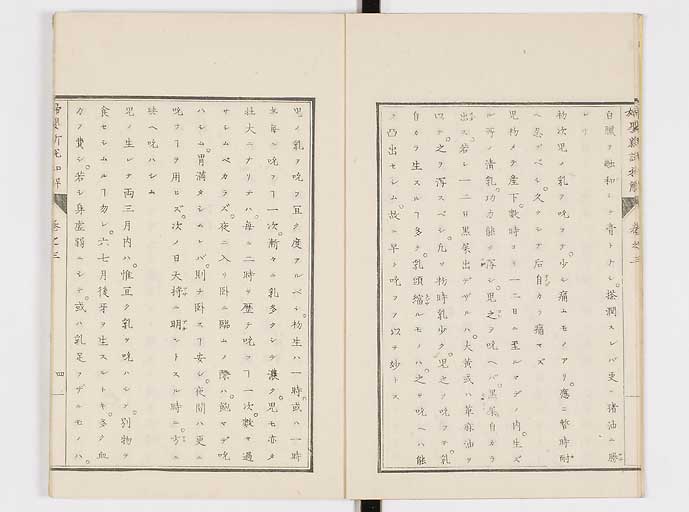 白臘ヲ融和シテ膏トナシ。搽潤スレバ更ニ猪油ニ勝
レリ
初次児ノ乳ヲ吮フテ。少シ痛ムモノアリ。應ニ暫時耐
ヘ忍ブベシ。久クシテ后自カラ痛マズ
児初メテ産下。数時ヨリ一二日ニ至ルマデノ内。生ズ
ル所ノ清乳。功力能ク瀉シ。児之ヲ吮ヘバ。黒屎自カラ
出ヅ。若シ一二日黒屎出デザルハ。大黄或ハ萆麻油ヲ
以テ之ヲ瀉スベシ。凢ソ初時乳少ク。児之ヲ吮フテ。乳
自カラ生スルヿ多ク。乳頭縮ルモノハ。之ヲ吮ヘハ能
ク凸出セシム。故ニ早ク吮フヲ以テ妙トス
児ノ乳ヲ吮フ。宜ク度アルベシ。初生ハ一時。或ハ一時
半毎ニ吮フヿ一次。漸々ニ乳多クシテ濃ク。児モ亦タ
壮大ニナリナハ。毎ニ二時ヲ歴テ吮フヿ一次。数々過
サシムベカラズ。夜ニ入リ卧ニ臨ムノ際ハ。飽マデ吮
ハシム。胃満タシムレバ則チ卧スヿ安シ。夜間ハ更ニ
吮フヿヲ用ヒズ。次ノ日天将ニ明ントスル時ニ。方ニ
味ヘ吮ハシム
児ノ生レテ両三月内ハ。惟宜ク乳ヲ吮ハシテ。別物ヲ
食セシムルヿ勿レ。六七月後。牙ヲ生スルトキ。多ク血
カヲ費シ。若シ身虚弱ニシテ。或ハ乳足ラザルモノハ。
卷之三
四